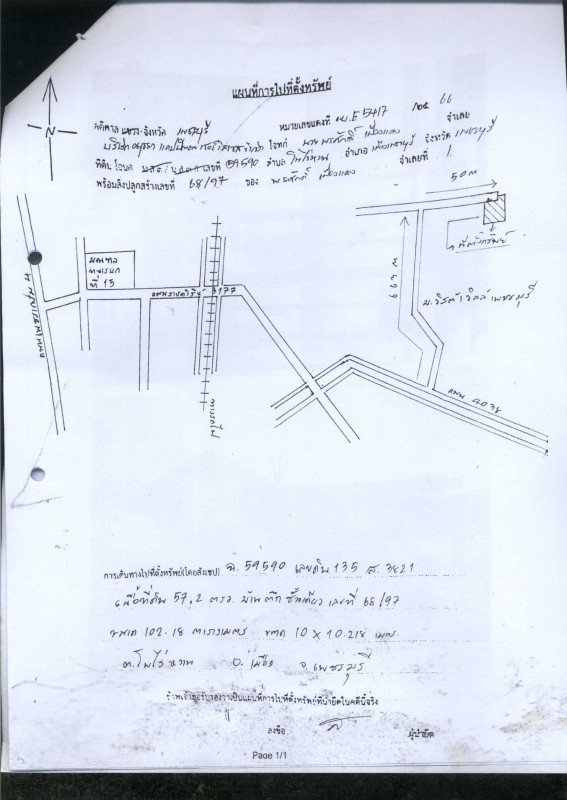 แผนที่การไปที่ตั้งทรัพย์
คดีศาล แขวง จังหวัด เพชรบุรี หมายเลขแดงที่ ผบ.E 5417 /25 66
จำเลย
บริษัท โจทก์ นาย พรศักดิ์ เมืองแดง
ที่ดินโฉนด เลขที่ 59590 ตำบล โพไร่หวาน อำเภอ เมืองเพชรบุรี จังหวัด เพชรบุรี
พร้อมสิ่งปลูกสร้างเลขที่ 68/97 ของ พรศักดิ์ เมืองแดง จำเลยที่ 1
N
50 m
มณฑล
ทหารบก
ที่ 15
ถนนราชดำริห์ 3177
ที่ตั้งทรัพย์
667 m
ม.วิสต้าวิลล์เพชรบุรี
ถนนเพชรเกษม 4
ทางรถไฟ
ถนน 4038
การเดินทางไปที่ตั้งทรัพย์(โดยสังเขป) ฉ. 59590 เลขดิน 135 ส. 3821
เนื้อที่ดิน 57.2 ตรว. บ้านตึกชั้นเดียว เลขที่ 68/97
ขนาด 102.18 ตารางเมตร ขนาด 10 X 10.218 เมตร
ต.โพไร่หวาน อ.เมือง จ.เพชรบุรี
ข้าพเจ้าขอรับรองว่าเป็นแผนที่การไปที่ตั้งทรัพย์ที่นำยึดในคดีนี้จริง
ลงชื่อ ผู้นำยึด
Page 1/1